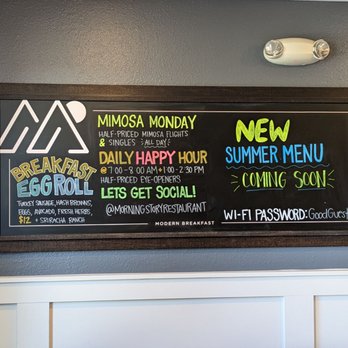 BREAKFAST
EGG ROLL
TURKEY SAUSAGE, HASH BROWNS,
EGGS, AVOCADO, FRESH HERBS,
$12 + SRIRACHA RANCH
MIMOSA MONDAY
HALF-PRICED MIMOSA FLIGHTS
& SINGLES *ALL DAY*
DAILY HAPPY HOUR
@ 7:00 - 9:00 AM + 1:00 - 2:30 PM
HALF-PRICED EYE-OPENERS
LETS GET SOCIAL!
@MORNINGSTORYRESTAURANT
MODERN BREAKFAST
NEW
SUMMER MENU
COMING SOON
WI-FI PASSWORD: GoodGuest